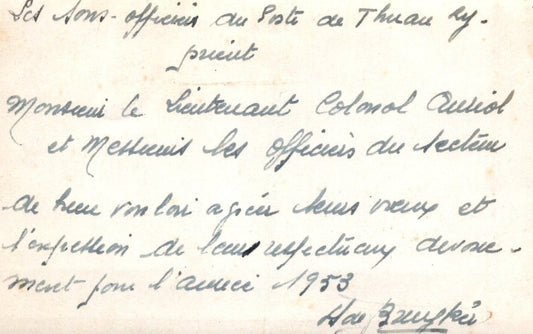 Les Sous-officiers du Poste de Thuan Ky-
prient
Monsieur le Lieutenant Colonel Auriol
et Messieurs les Officiers du Secteur
de bien vouloir agréer leurs vœux et
l'expression de leur respectueux dévoue-
ment pour l'année 1953